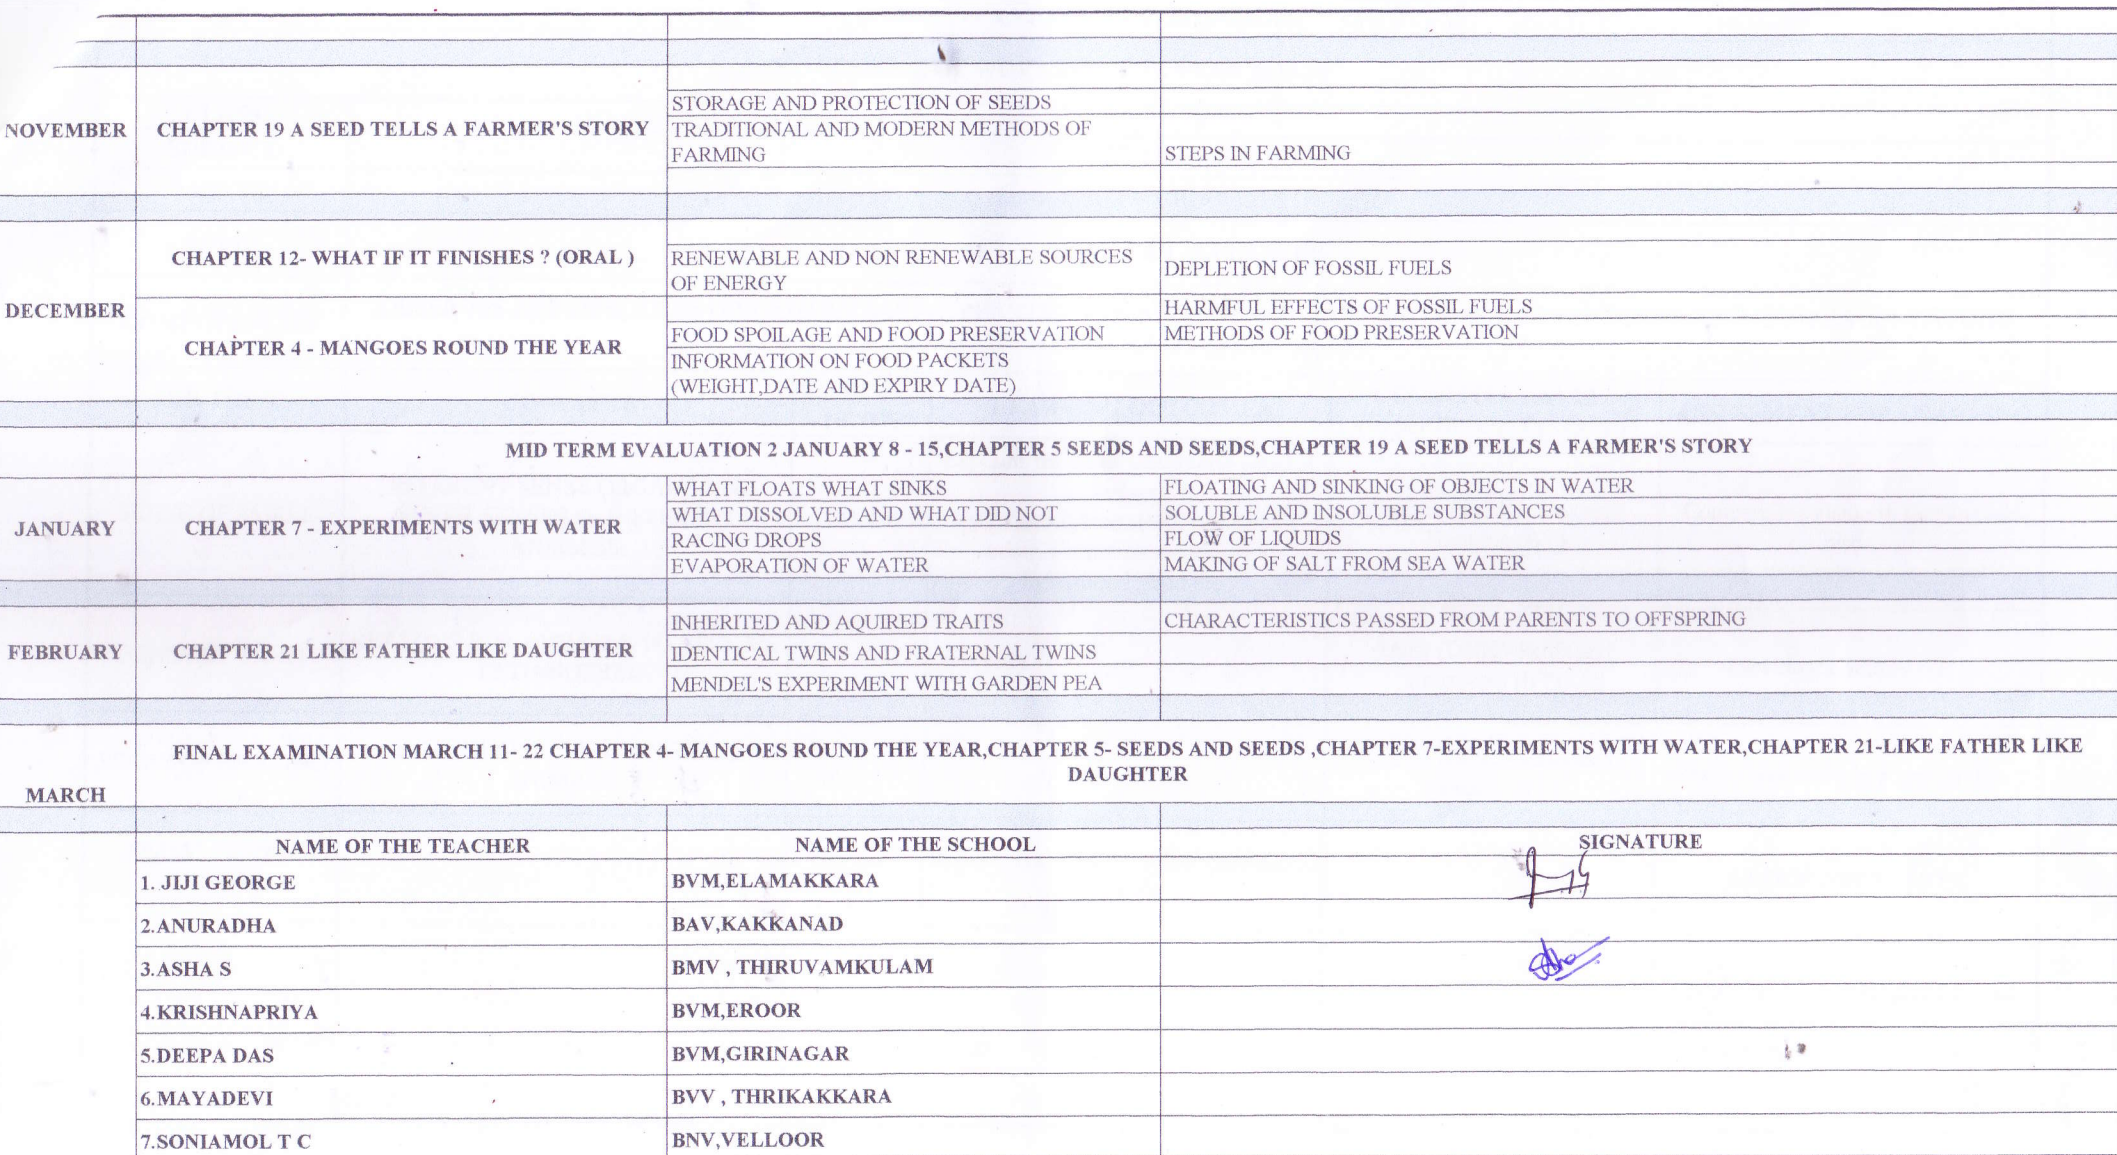 STORAGE AND PROTECTION OF SEEDS
NOVEMBER CHAPTER 19 A SEED TELLS A FARMER'S STORY TRADITIONAL AND MODERN METHODS OF
FARMING STEPS IN FARMING
CHAPTER 12- WHAT IF IT FINISHES ? (ORAL ) RENEWABLE AND NON RENEWABLE SOURCES
OF ENERGY DEPLETION OF FOSSIL FUELS
DECEMBER HARMFUL EFFECTS OF FOSSIL FUELS
CHAPTER 4 - MANGOES ROUND THE YEAR FOOD SPOILAGE AND FOOD PRESERVATION METHODS OF FOOD PRESERVATION
INFORMATION ON FOOD PACKETS
(WEIGHT,DATE AND EXPIRY DATE)
MID TERM EVALUATION 2 JANUARY 8 - 15,CHAPTER 5 SEEDS AND SEEDS,CHAPTER 19 A SEED TELLS A FARMER'S STORY
WHAT FLOATS WHAT SINKS FLOATING AND SINKING OF OBJECTS IN WATER
WHAT DISSOLVED AND WHAT DID NOT SOLUBLE AND INSOLUBLE SUBSTANCES
JANUARY CHAPTER 7 - EXPERIMENTS WITH WATER RACING DROPS FLOW OF LIQUIDS
EVAPORATION OF WATER MAKING OF SALT FROM SEA WATER
INHERITED AND AQUIRED TRAITS CHARACTERISTICS PASSED FROM PARENTS TO OFFSPRING
FEBRUARY CHAPTER 21 LIKE FATHER LIKE DAUGHTER IDENTICAL TWINS AND FRATERNAL TWINS
MENDEL'S EXPERIMENT WITH GARDEN PEA
FINAL EXAMINATION MARCH 11- 22 CHAPTER 4- MANGOES ROUND THE YEAR,CHAPTER 5- SEEDS AND SEEDS ,CHAPTER 7-EXPERIMENTS WITH WATER,CHAPTER 21-LIKE FATHER LIKE
DAUGHTER
MARCH
NAME OF THE TEACHER NAME OF THE SCHOOL SIGNATURE
1. JIJI GEORGE BVM,ELAMAKKARA
2.ANURADHA BAV,KAKKANAD
3.ASHA S BMV , THIRUVAMKULAM
4.KRISHNAPRIYA BVM,EROOR
5.DEEPA DAS BVM,GIRINAGAR
6.MAYADEVI BVV , THRIKAKKARA
7.SONIAMOL T C BNV,VELLOOR